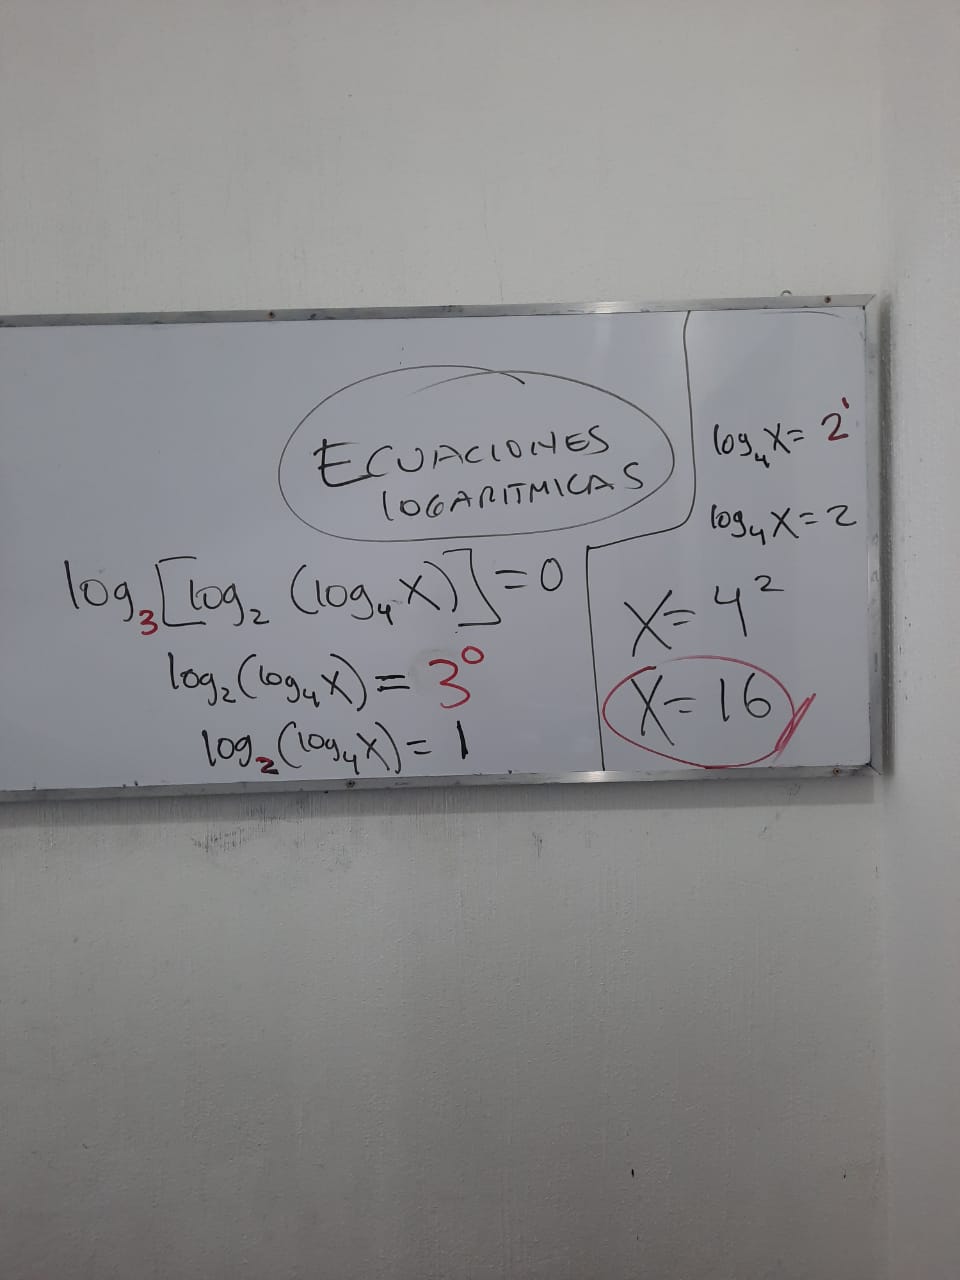 ECUACIONES
LOGARITMICAS
log₃[log₂ (log₄X)]=0
log₂(log₄X)= 3⁰
log₂(log₄X)= 1
log₄X= 2¹
log₄X=2
X=4²
X=16